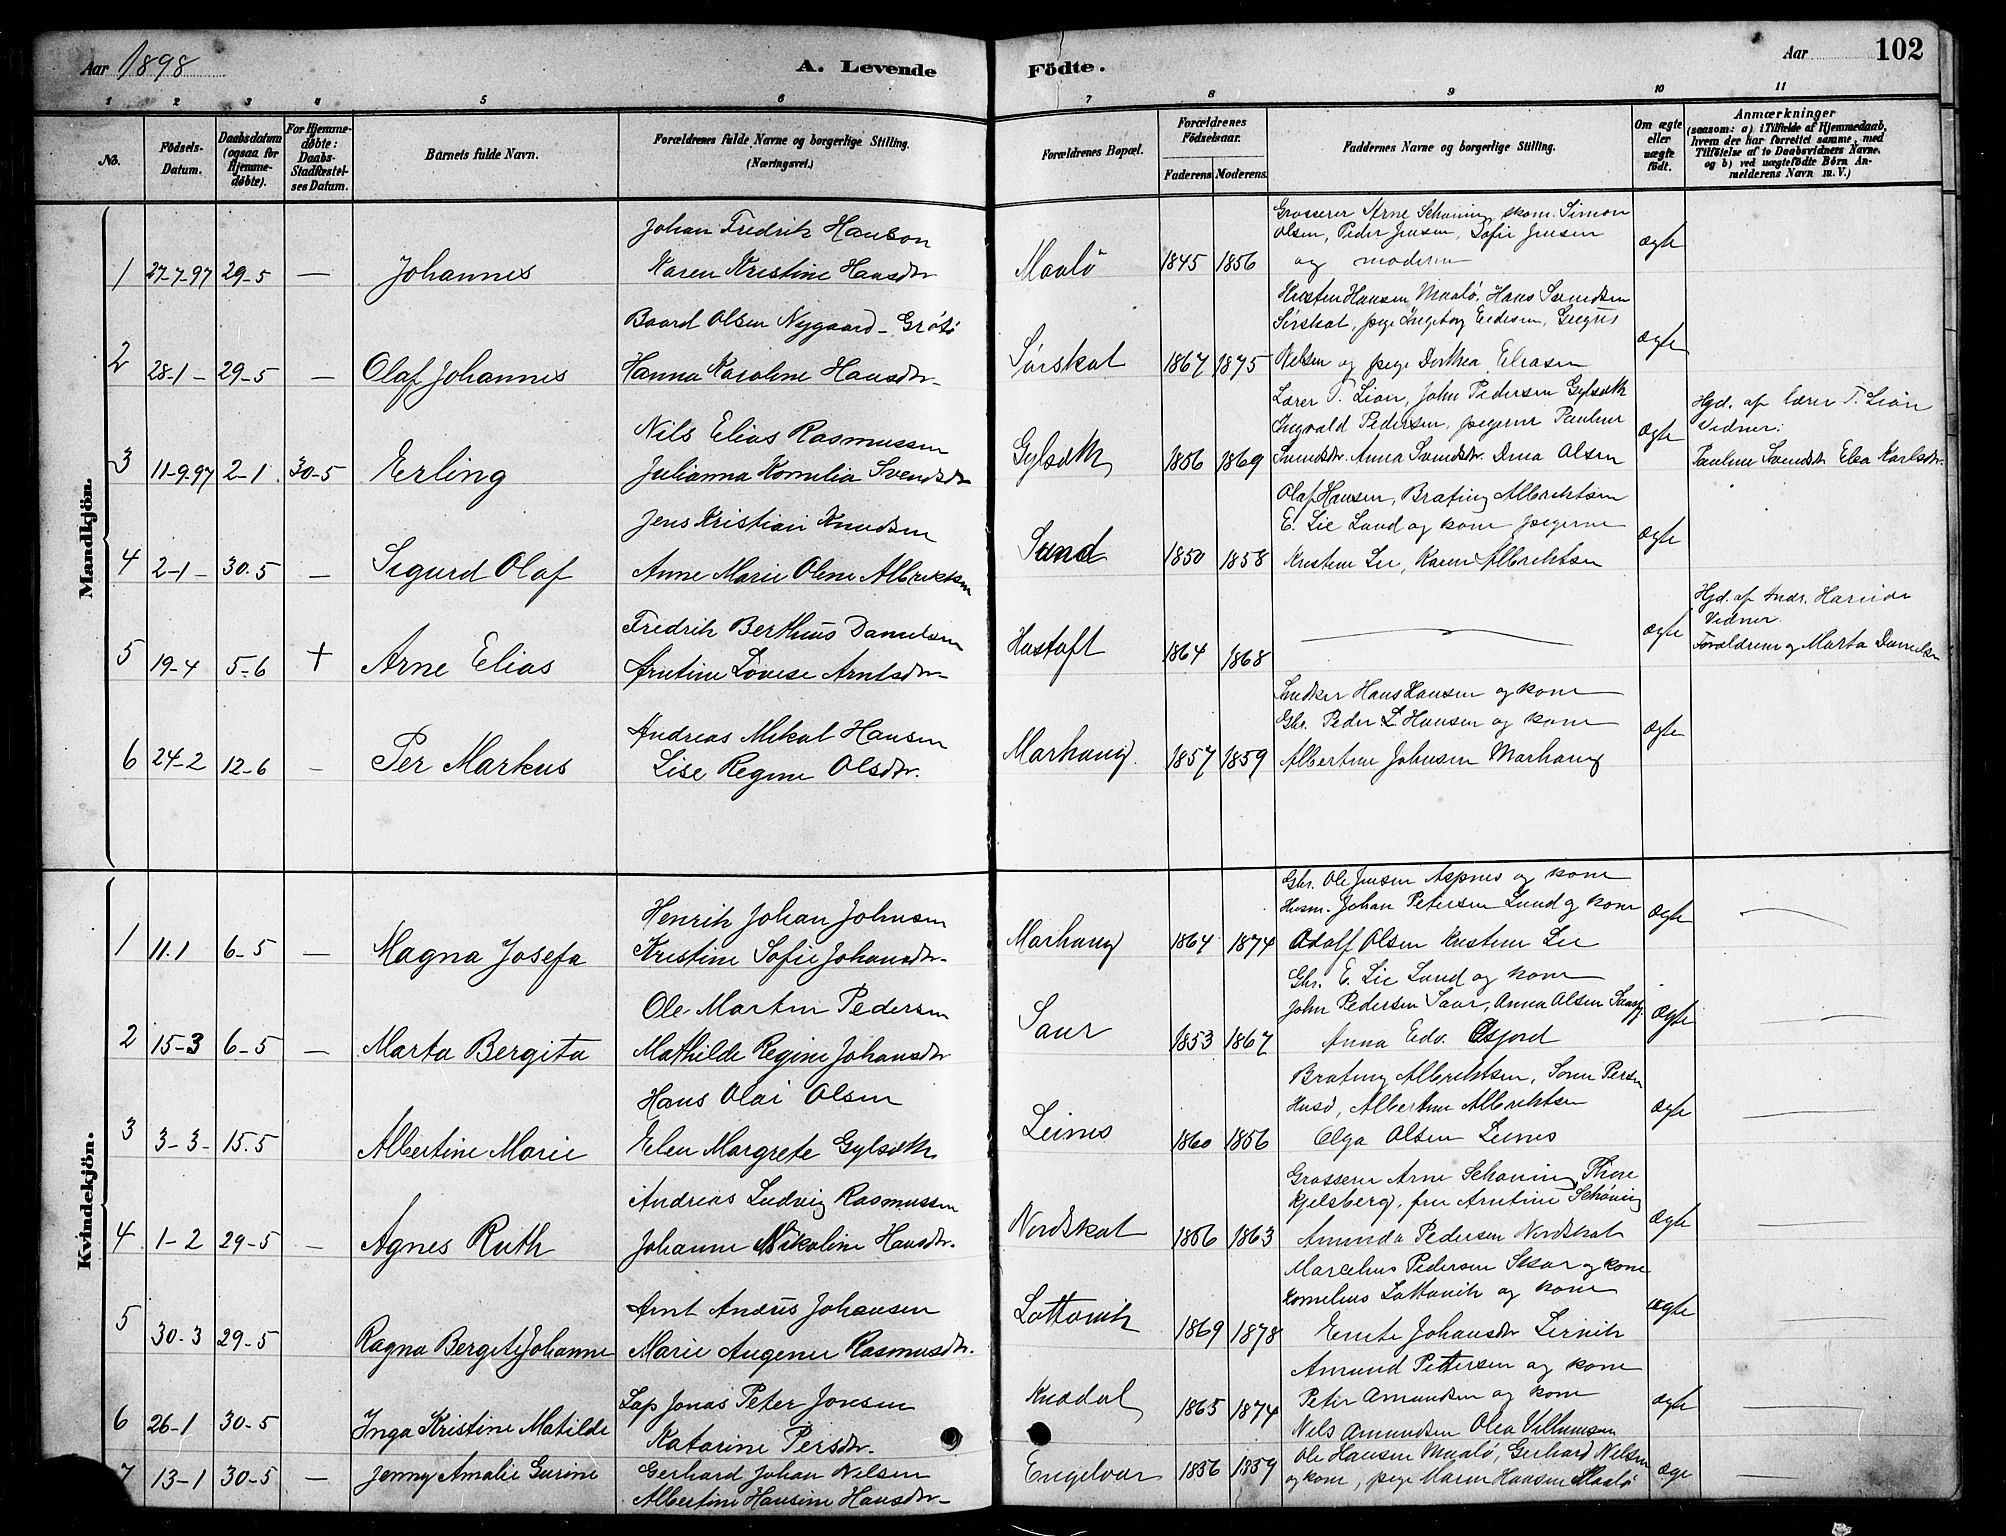 Aar 1898
A. Levende Födte.
Aar
102
1 2 3 4 5 6 7 8 9 10 11
No.
Födsels-Datum.
Daabsdatum (ogsaa for Hjemme-döbte).
For Hjemme-döbte: Daabs-Stadfæstel-ses Datum.
Barnets fulde Navn.
Forældrenes fulde Navne og borgerlige Stilling. (Næringsvei.)
Forældrenes Bopæl.
Forældrenes Födselsaar.
Faderens. Moderens.
Faddernes Navne og borgerlige Stilling.
Om ægte eller uægte födt.
Anmærkninger
(saasom: a) i Tilfælde af Hjemmedaab, hvem der har forrettet samme, med Tilföielse af to Daabsvidners Navne. og b) ved uægtefödte Börn An-melderens Navn m. V.)
Mandkjön.
Johan Fredrik Hanson
Grosserer Arne Schøning, kom. Simon
Olsen, Peder Jensen, Sofie Jensen
1 27-7-97 29-5 — Johannes Karen Kristine Hansdtr Maalö 1845 1856 og moderen ægte
Baard Olsen Nygaard - Grötö
Kristen Hansen Maalö, Hans Svendsen
Sörskat, pige Ingeborg
2 28-1- 29-5 — Olaf Johannes Hanna Karoline Hansdtr. Sörskat 1867 1875 Nelsen og pige Dorthea Eliasen ægte
Nils Elias Rasmussen
Lærer T. Lian, John Pedersen Gylseth
Ingvald Pedersen, pigerne Pauline
Hjd. af lærer T. Lian
Vidner:
3 11-9-97 2-1 30-5 Erling Julianna Kornelia Svendsdtr Gylseth 1856 1869 Svendsdtr. Anna Svendsdtr. Dina Olsen ægte Pauline Svendsdtr Elea Karlsdtr.
Jens Kristian Knudsen
Olaf Hansen, Brating Albriktsen
E. Lie Sund og kone pigerne
4 2-1- 30-5 — Sigurd Olaf Anne Marie Oline Albriktsen Sund 1850 1858 Kristine Lie, Karen Albriktsen ægte
Fredrik Berthus Danielsen
Hjd. af Andr.
Vidner
5 19-4 5-6 + Arne Elias Arntine Lovise Arntsdtr. Hastaft 1864 1868 — ægte Forældrene og Marta Danielsen
Andreas Mikal Hansen
Snedker Hans Hansen og kone
Gbr. Peder L Hansen og kone
6 24-2 12-6 — Per Markus Lise Regine Olsdtr. Marhaug 1857 1859 Albertine Johnsen Marhaug ægte
Kvindekjön.
Henrik Johan Johnsen
Gbr. Ole Jensen Aspnes og kone
Husm. Johan Petersen Sund og kone
1 11.1 6-5 — Magna Josefa Kristine Sofie Johansdtr. Marhaug 1864 1874 Adolf Olsen Kristine Lie ægte —
Ole Martin Pedersen
Gbr. E. Lie Sund og kone
John Pedersen Saur, Anna Olsen
2 15-3 6-5 — Marta Bergita Mathilde Regine Johansdtr Saur 1853 1867 Anna Edv. Osfjord ægte —
Hans Olai Olsen
Brating Albriktsen,
Husö, Albertine Albriktsen
3 3-3- 15.5 Albertine Marie Elen Margrete Gylseth Leines 1860 1856 Olga Olsen Leines ægte —
Andreas Ludvig Rasmussen
Grosserer Arne Schøning, Thore
Kjelsberg, fru Arntine Schöning
4 1-2 29-5 — Agnes Ruth Johanne Nikoline Hansdtr. Nordskat 1856 1863 Aminda Pedersen Nordskat ægte —
Arnt Andreus Johansen
Marcelius Pedersen Skar og kone
Kornelius Lottavik og kone
5 30-3 29-5 Ragna Bergit Johanne Marie Augene Rasmusdtr. Lottavik 1869 1878 Johansdtr ægte —
Lap Jonas Peter Jonsen
Amund Pettersen og kone
Peter Amundsen og kone
6 26-1 30-5 Inga Kristine Matilde Katarine Persdtr. 1865 1874 Nils Amundsen Olea Villumsen ægte —
Gerhard Johan Nilsen
Ole Hansen Maalö, Gerhard Nilsen
7 13-1 30-5 — Jenny Amalie Gurine Albertine Hansine Hansdtr. Engelvær 1856 1859 og kone, pige Maren Hansen Maalö æge —